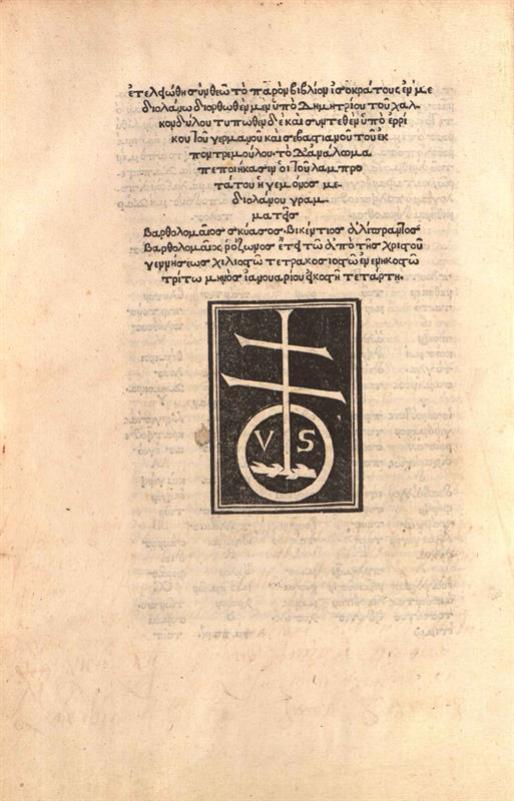 ἐτελειώθη σὺν θεῶ τὸ παρὸν βιβλίον ἰσοκράτους ἐν με
διολάνω διορθωθὲν μὲν ὑπὸ Δημητρίου τοῦ χαλ
κονδύλου τυπωθὲν δὲ καὶ συντεθὲν ὑπὸ ἐρρί
κου τοῦ γερμανοῦ καὶ σεβαστιανοῦ τοῦ ἐκ
ποντρεμούλου· τὸ Δ' ἀνάλωμα
πεποιήκασιν οἱ τοῦ λαμπρο
τάτου ἡγεμόνος με
διολάνου γραμ
ματεῖς
Βαρθολομαῖος σκύασος· Βικέντιος ἀλίπραντος
Βαρθολομαῖος ῥόζωνος ἔτει τῶ ἀπὸ τῆς χριστοῦ
γεννήσεως χιλιοστῶ τετρακοσιοστῶ ἐνενηκοστῶ
τρίτω μηνὸς ἰανουαρίου εἰκοστῆ τετάρτη.
V S